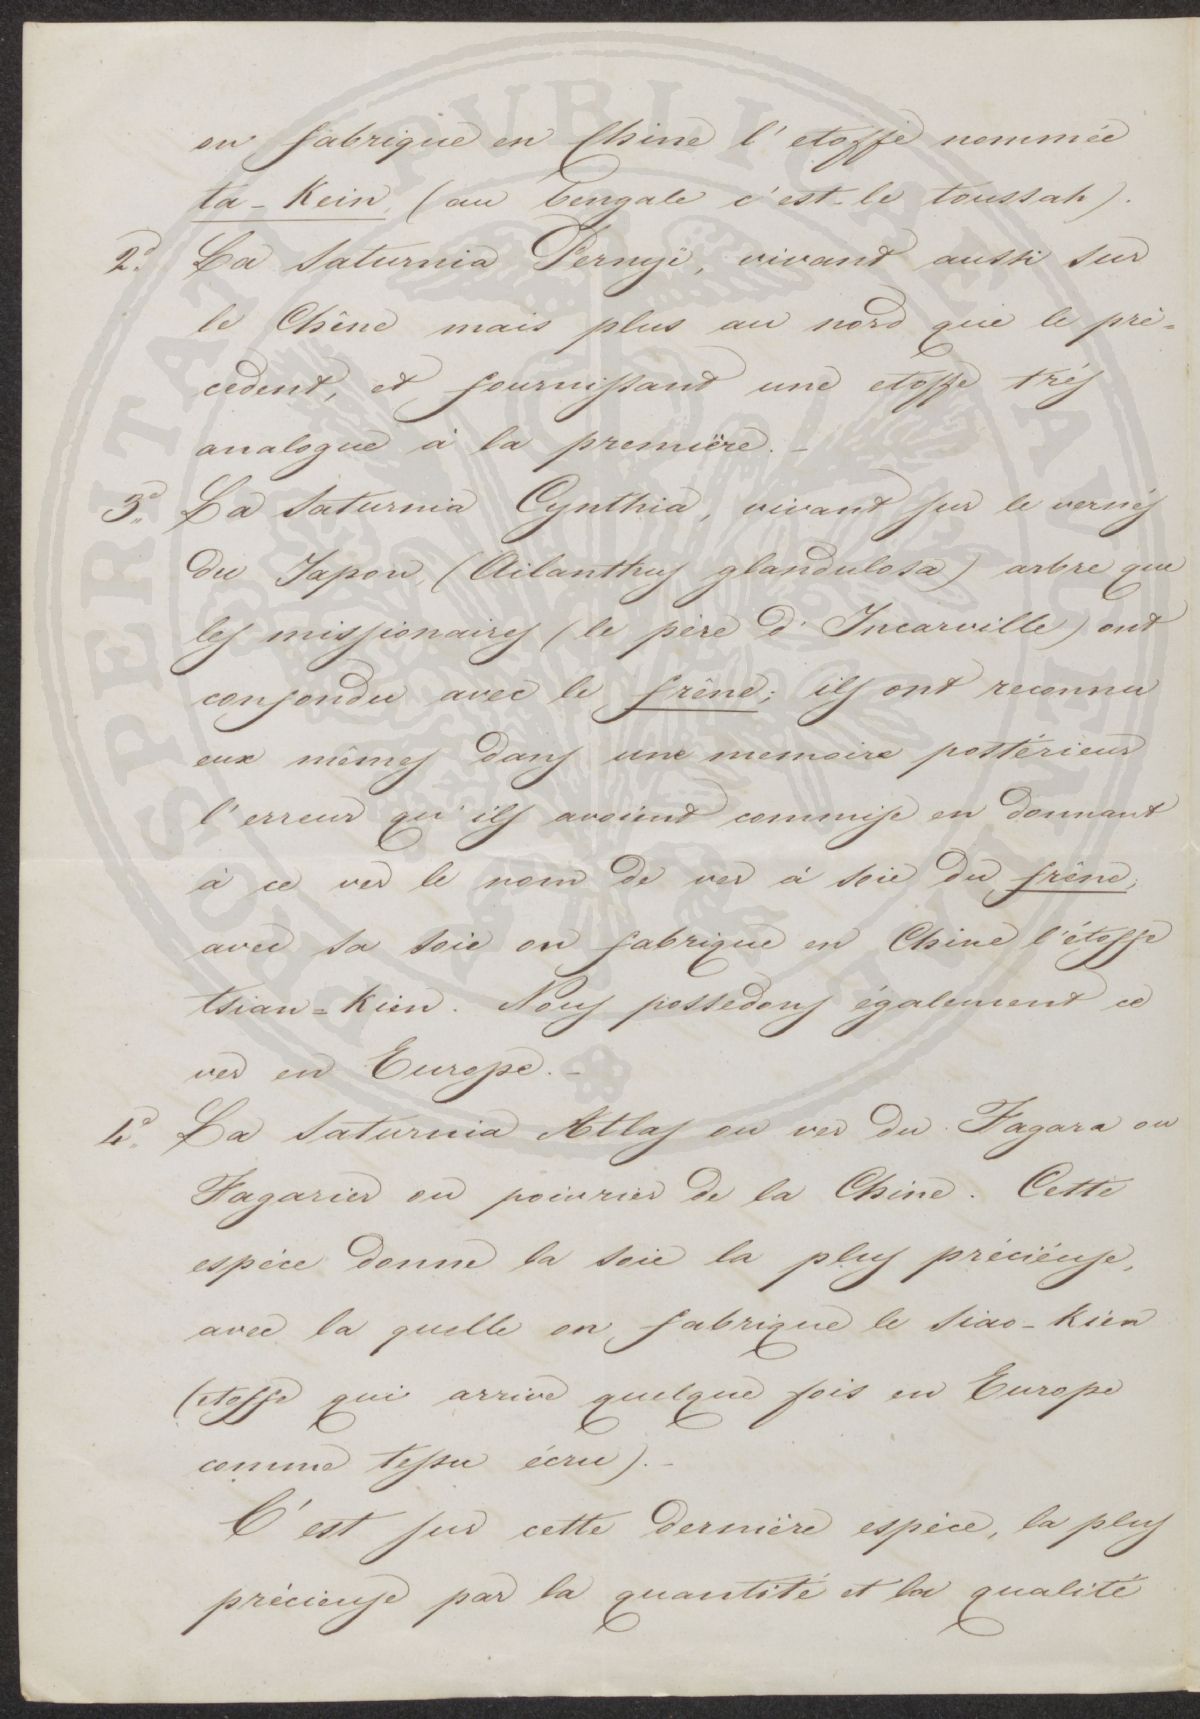 on fabrique en Chine l'etoffe nommée
ta-Kein, (au bengale c'est-le toussah).
2º. La Saturnia Pernyï, vivant aussi sur
le Chêne mais plus au nord que le pré=
cedent, et fournissant une etoffe trés
analogue à la premiëre. -
3º. La Saturnia Cynthia, vivant sur le vernis
du Japon, (Ailanthus glandulosa) arbre que
les missionaires (le père d'Incarville) ont
confondu avec le frêne; ils ont reconnu
eux mêmes dans une memoire postérieur
l'erreur qu'ils avoient commise en donnant
à ce ver le nom de ver à soie du frêne;
avec sa soie on fabrique en Chine l'étoffe
tsian=Kien. Nous possedons également ce
ver en Europe. -
4º. La Saturnia Atlas ou ver du Fagara ou
Fagarier ou poivrier de la Chine. Cette
espéce donne la soie la plus préciëuse,
avec la quelle on fabrique le siao-Kien
(etoffe qui arrive quelque fois en Europe
comme tessu écru). -
C'est sur cette derniëre espéce, la plus
précieuse par la quantité et la qualité
PROSPERITATI PUBLICAE AUGENDAE